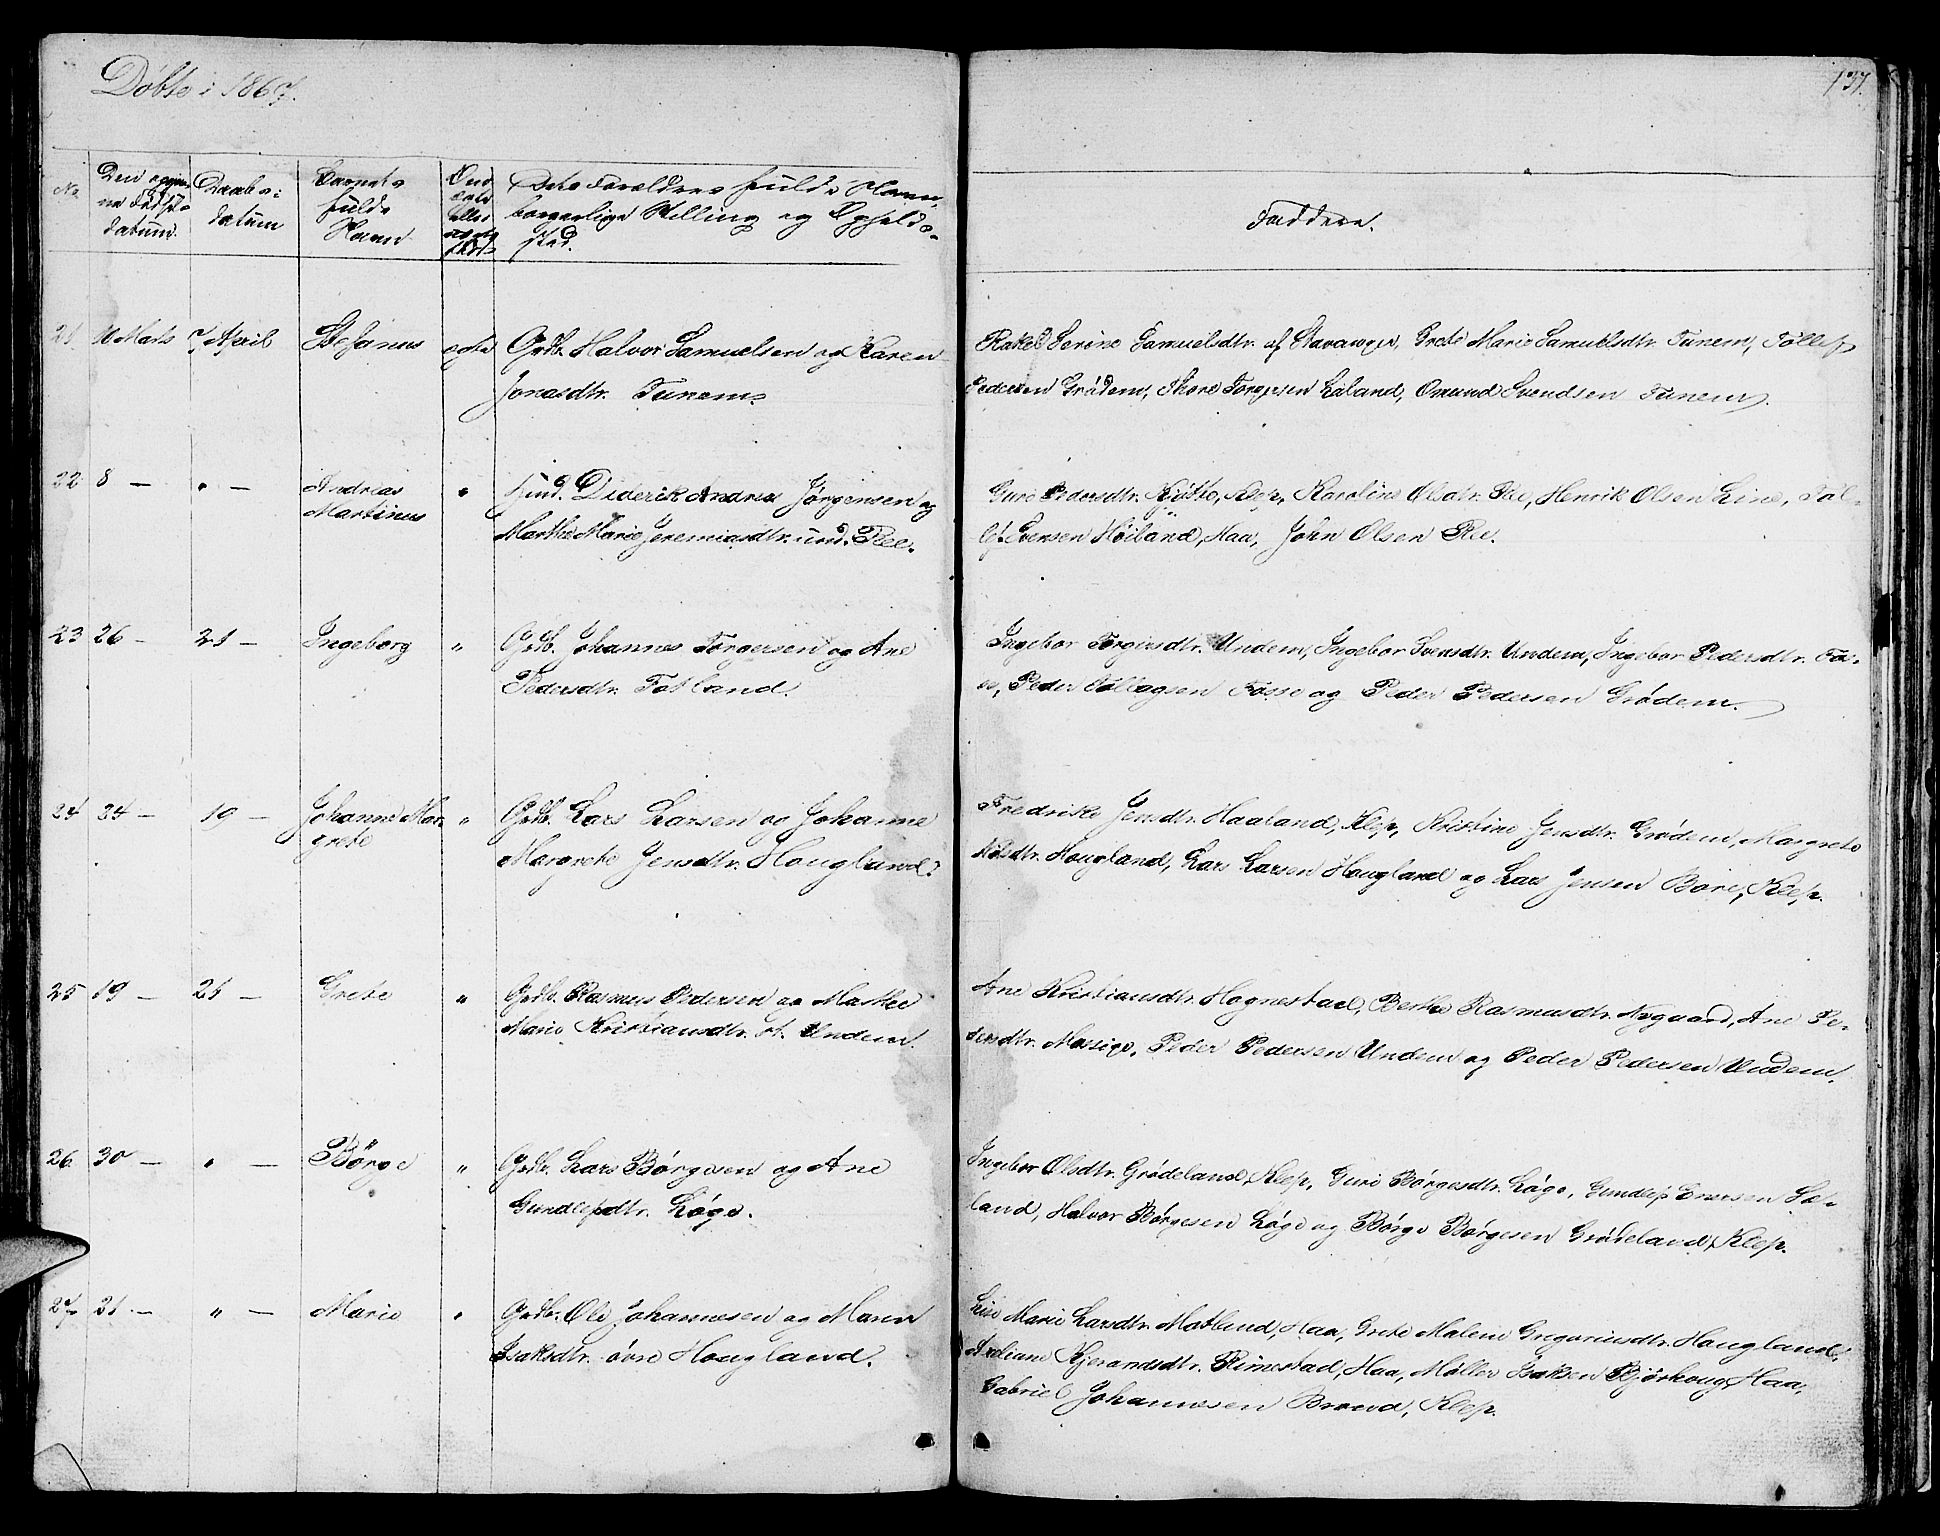 Döbte i 1867.
137.
No.
Den opgiv-
ne Fødsels
datum.
Daabs-
datum
Barnets
fulde
Navn
Om
ægte
eller
uægte
født
Dets Forældres fulde Navn,
borgerlige Stilling og Opholds-
sted.
Faddere.
21 10 Marts 7 April Stefanus egte Grdb. Halvor Samuelsen og Karen
Jonasdtr. Tunem.
Rakel Serine Samuelsdtr. af Stavanger, Grete Marie Samuelsdtr. Tunem, Tollef
Pedersen Grödem, Thore Torgersen Laland, Omund Svendsen Tunem.
22 8 — " — Andreas
Martinus
" Hmd. Diderik Andreas Jörgensen og
Marthe Marie Jeremiasdtr. und. Ree.
Guro Pedersdtr. Klep, Karoline Olsdtr. Ree, Henrik Olsen Line, Tol-
lef Evensen Höiland, Haa, John Olsen Ree.
23 26 — 21 — Ingeborg " Grdb. Johannes Torgersen og Ane
Pedersdtr. Fotland.
Ingebor Torgersdtr. Undem, Ingebor Svensdtr. Undem, Ingebor Pedersdtr. Fos-
se, Peder Tollagsen Fosse og Peder Pedersen Grödem.
24 24 — 19 — Johanne Mar-
grete
" Grdb. Lars Larsen og Johanne
Margrete Jensdtr. Hougland.
Fredrike Jensdtr. Haaland, Klep, Kristine Jensdtr. Grödem, Margrete
Nilsdtr. Hougland, Lars Larsen Hougland og Lars Jensen Bore, Klep.
25 19 — 21 — Grete " Grdb. Rasmus Pedersen og Marthe
Marie Kristiansdtr. st. Undem.
Ane Kristiansdtr. Hognestad, Berthe Rasmusdtr. Nygaard, Ane Pe-
dersdtr. Mossige, Peder Pedersen Undem og Peder Pedersen Undem.
26 30 — " — Börge " Grdb. Lars Börgesen og Ane
Gundlefsdtr. Löge.
Ingebor Olsdtr. Grödeland, Klep, Guri Börgesdtr. Löge, Gundlef Enersen Sæ-
land, Halvor Börgesen Löge og Börge Börgesen Grödeland, Klep.
27 21 — " — Marie " Grdb. Ole Johannesen og Maren
Isaksdtr. övre Hougland.
Line Marie Larsdtr. Motland, Haa, Grete Malene Gregoriusdtr. Hougland,
Axeliane Kjerandsdtr. Rimestad, Haa, Möller Isaksen Bjorhoug, Haa,
Gabriel Johannesen Braud, Klep.